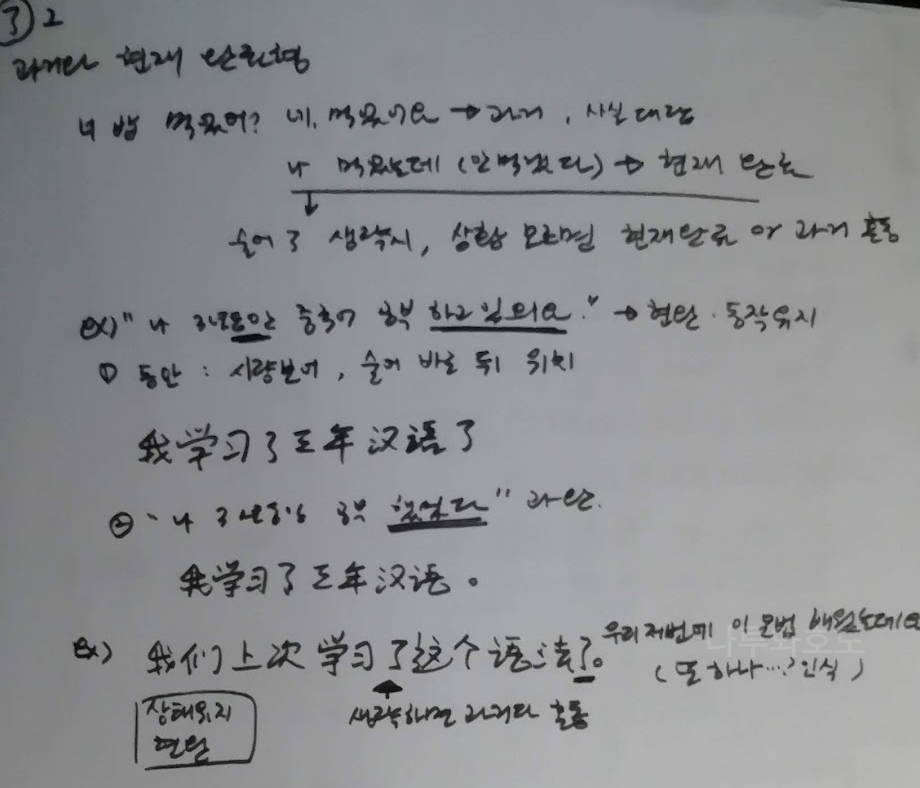 ③ 2
과거와 현재 완료형
너 밥 먹었어? 네, 먹었어요 → 과거, 사실 대답
나 먹었는데 (안먹겠다) → 현재 완료
술어 了 생략시, 상황 모르면 현재완료 or 과거 혼동
ex) "나 3년동안 중국어 공부 하고 있어요." → 현완. 동작유지
① 동안 : 시량보어, 술어 바로 뒤 위치
我学习了三年汉语了
② "나 3년동안 공부 했었다" 과완.
我学习了三年汉语。
ex) 我们上次学习了这个语法了。 우리 저번에 이 문법 배웠는데요
(또 하나…? 인식)
생략하면 과거와 혼동
상태유지
현완
나무와오노